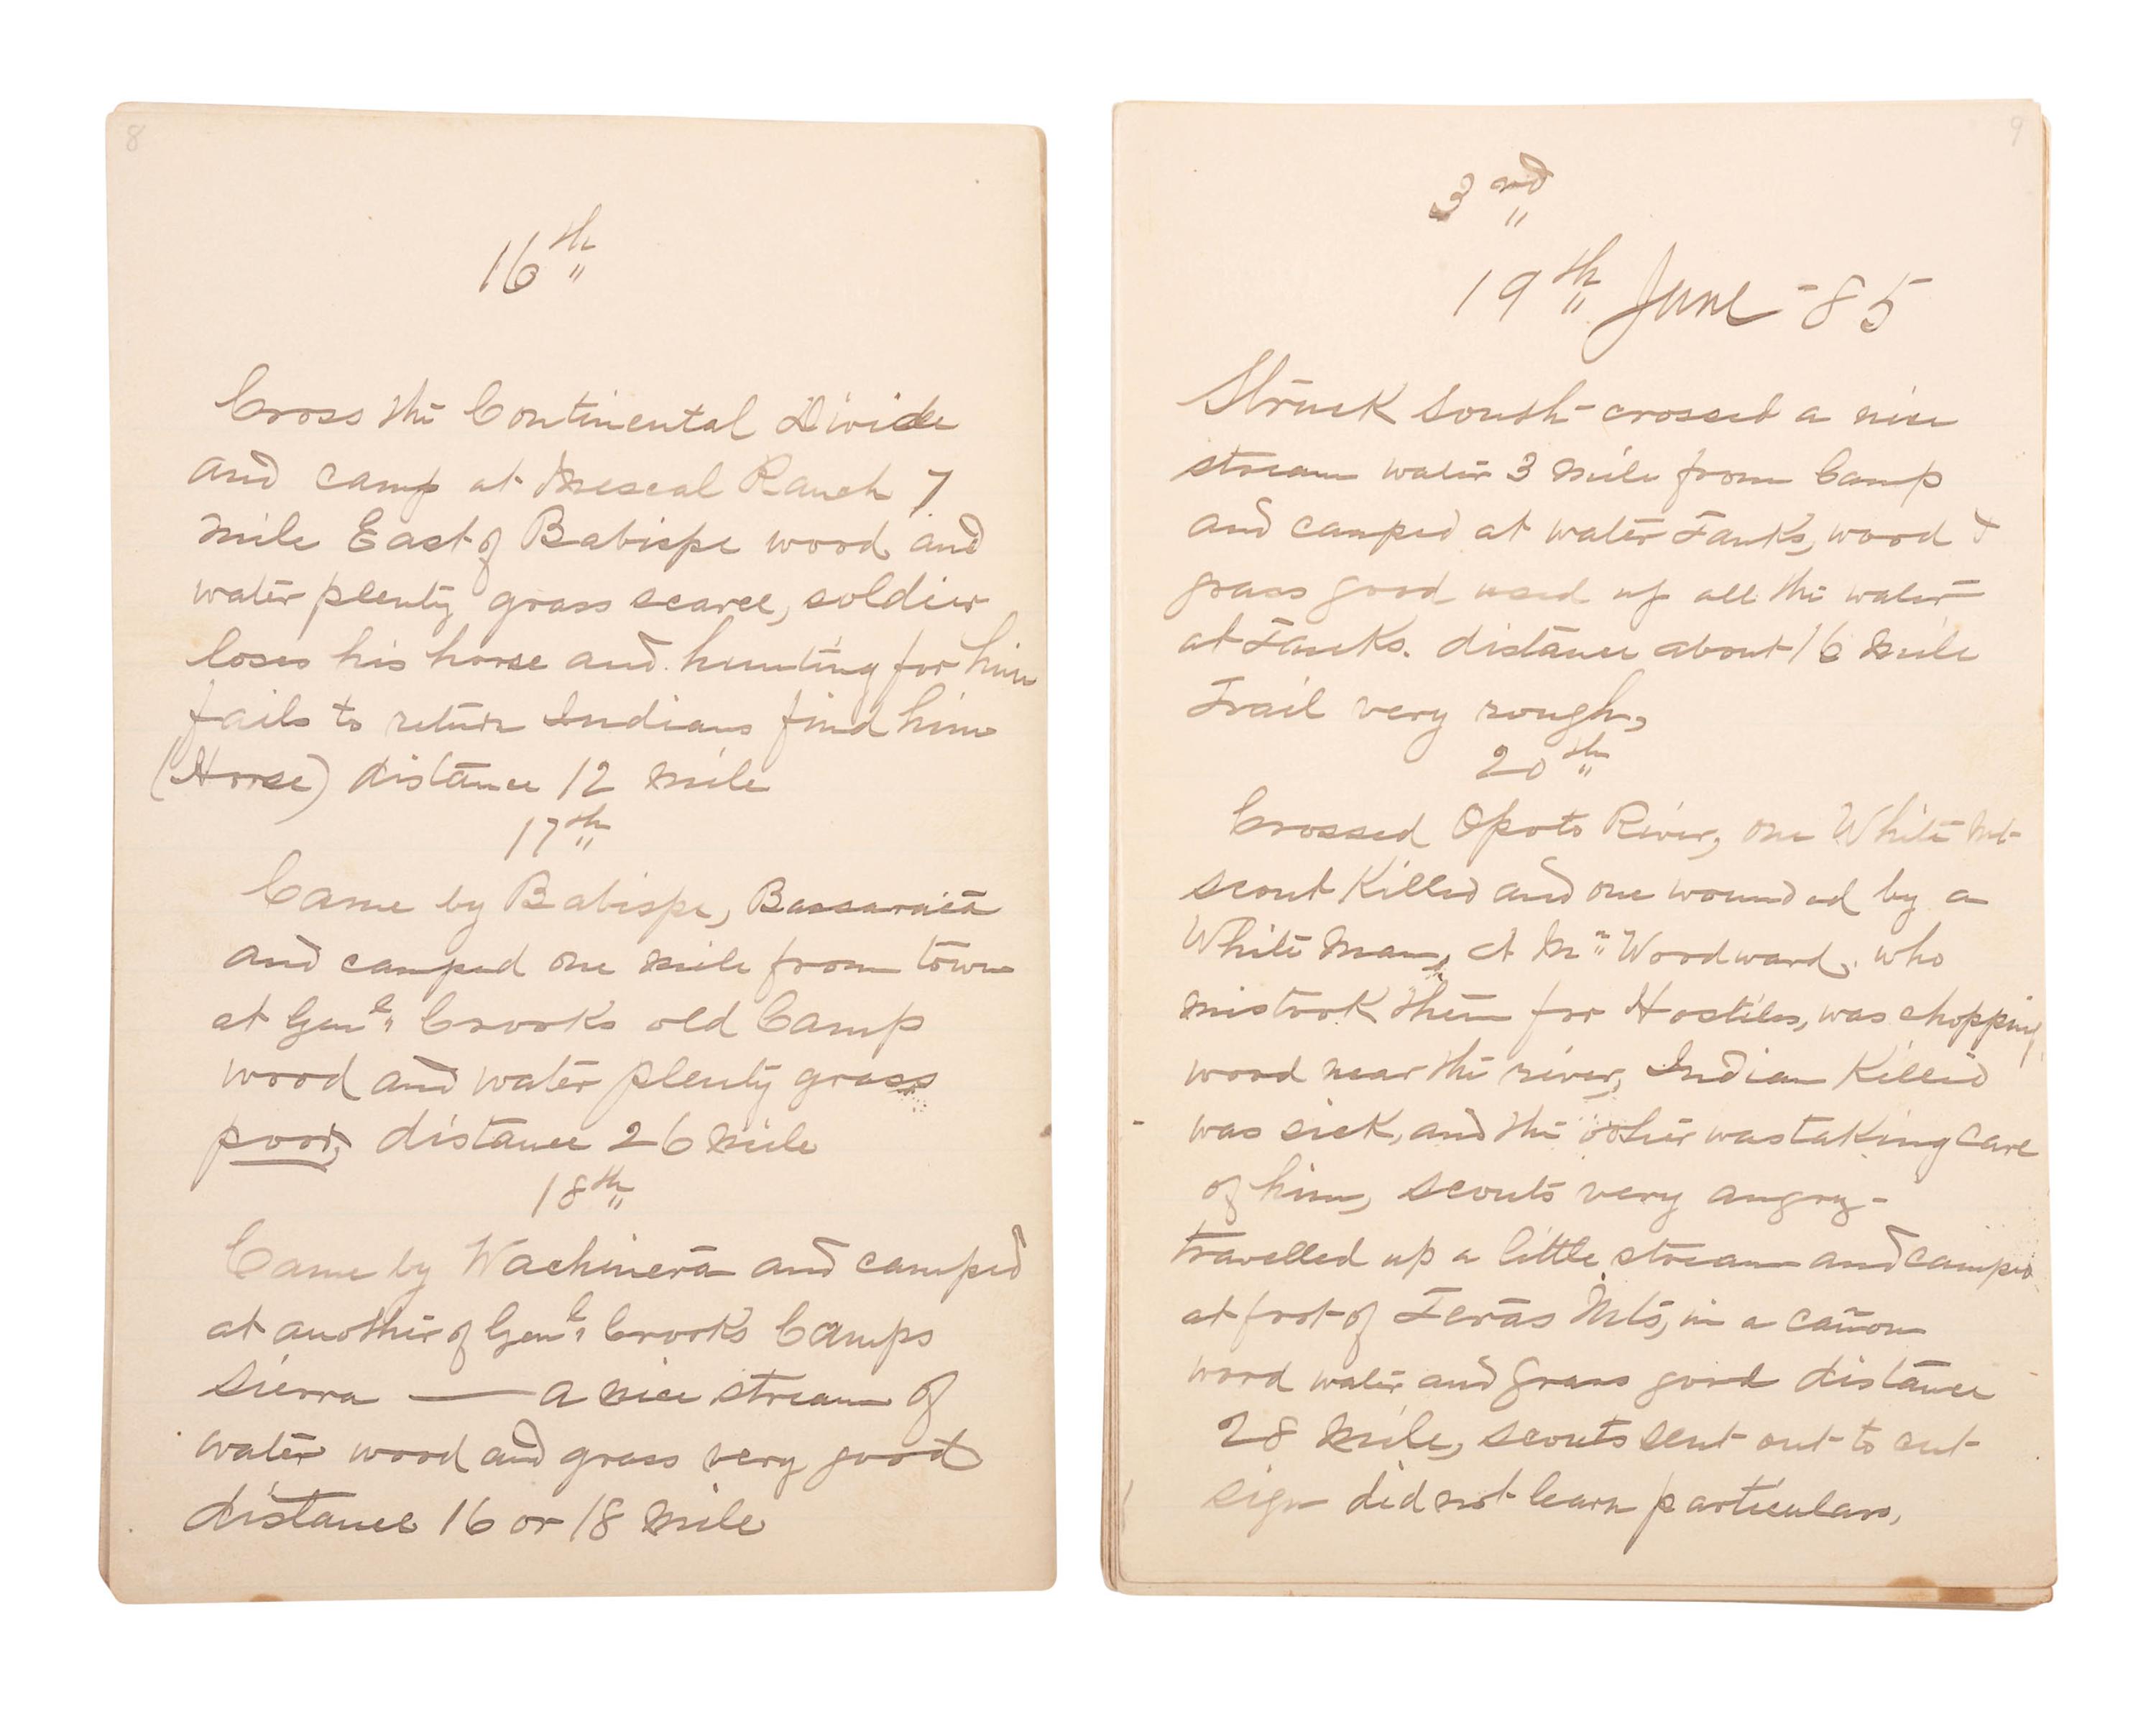 8
16th
Cross the Continental Divide
and camp at Mescal Ranch 7
mile East of Babispe wood and
water plenty grass scarce, soldier
loses his horse and hunting for him
fails to return Indians find him
(Horse) distance 12 mile
17th
Came by Babispe, Bassaraca
and camped one mile from town
at Genl. Crooks old Camp
wood and water plenty grass
poor, distance 26 mile
18th
Came by Wachinera and camped
at another of Genl. Crooks Camps
Sierra — a nice stream of
water wood and grass very good
distance 16 or 18 mile
9
3nd
19th June -85
Struck South - crossed a nice
stream water 3 mile from Camp
and camped at water Tanks, wood &
grass good used up all the water
at Tanks. distance about 16 mile
Trail very rough,
20th
Crossed Opoto River, one White Mt
scout Killed and one wounded by a
White man, a Mr. Woodward, who
mistook them for Hostiles, was chopping
wood near the river, Indian Killed
was sick, and the other was taking care
of him, scouts very angry -
travelled up a little stream and camped
at foot of Teras Mts, in a cañon
wood water and grass good distance
28 mile, scouts sent out to cut
sign did not learn particulars,